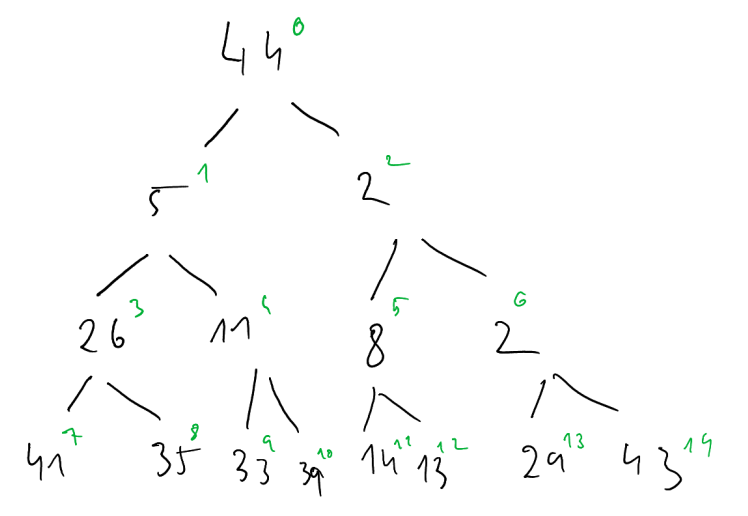 44 0
5 1 2 2
26 3 11 4 8 5 2 6
41 7 35 8 33 9 39 10 14 11 13 12 29 13 43 14